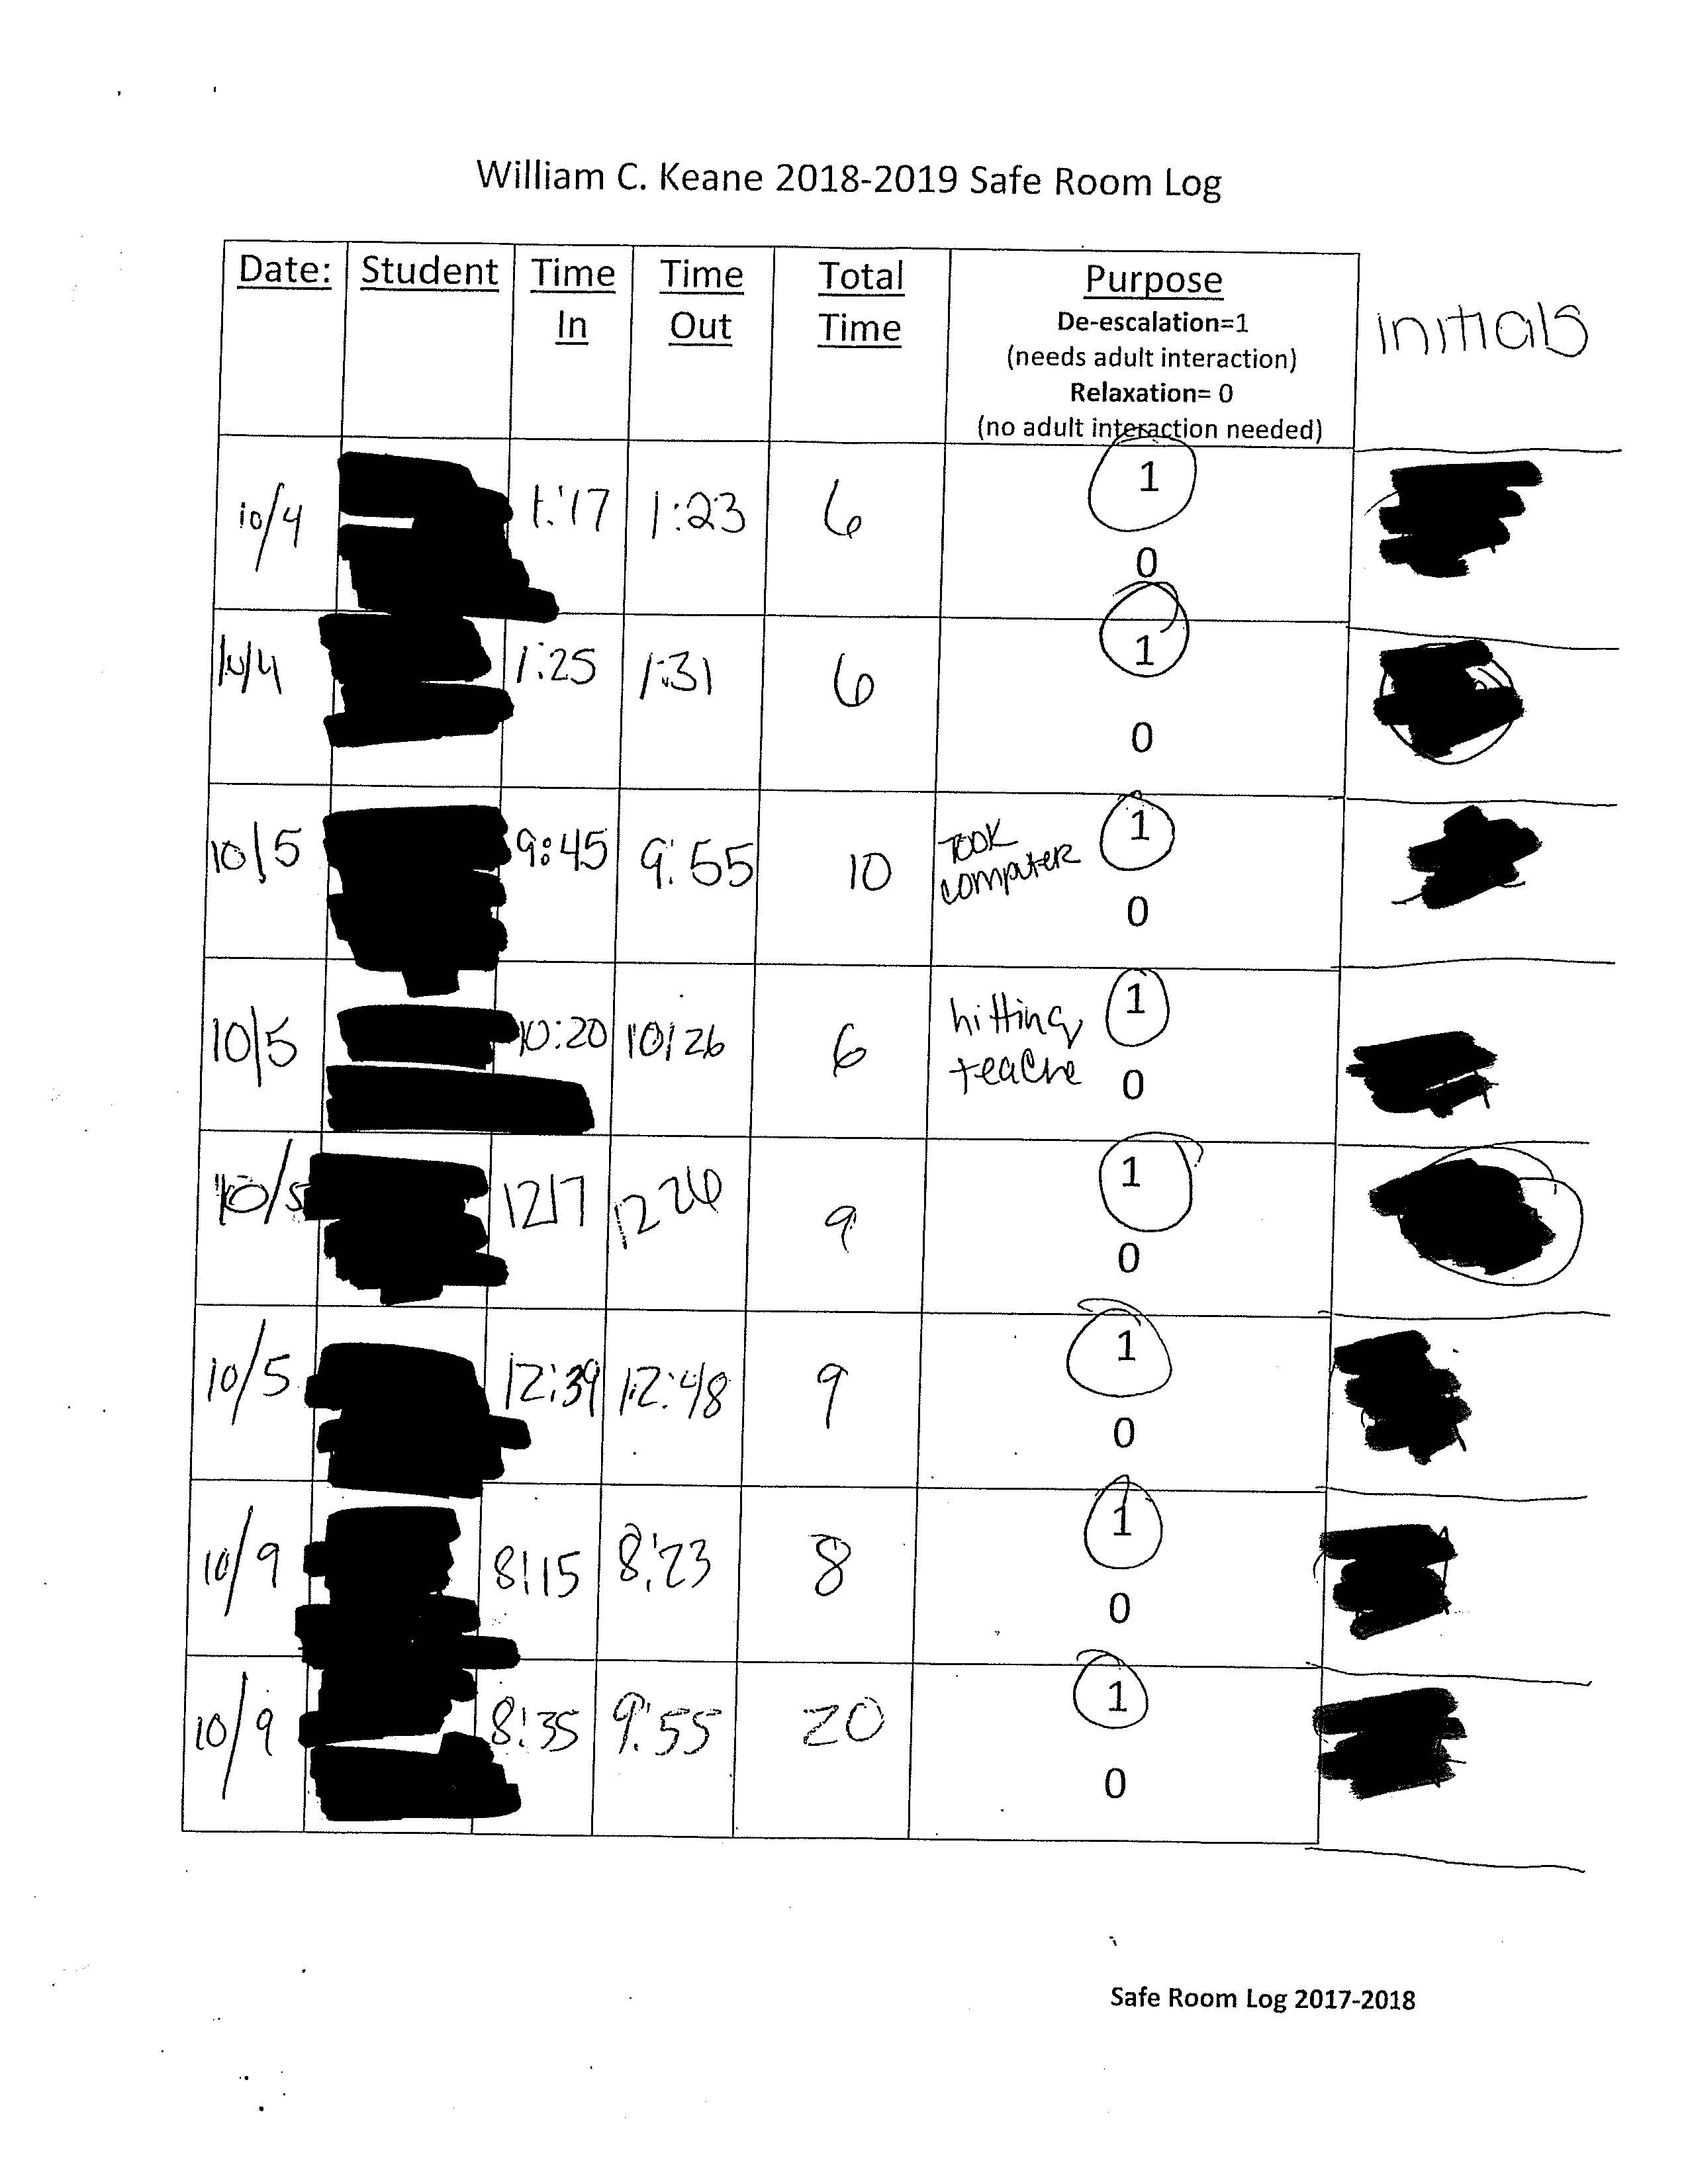 William C. Keane 2018-2019 Safe Room Log
Date: Student Time In Time Out Total Time Purpose
De-escalation=1
(needs adult interaction)
Relaxation= 0
(no adult interaction needed)
initials
10/4 1:17 1:23 6 1
0
10/4 1:25 1:31 6 1
0
10/5 9:45 9:55 10 TOOK computer 1
0
10/5 10:20 10:26 6 hitting teache 1
0
10/5 1217 1226 9 1
0
10/5 12:39 12:48 9 1
0
10/9 8:15 8:23 8 1
0
10/9 8:35 9:55 20 1
0
Safe Room Log 2017-2018